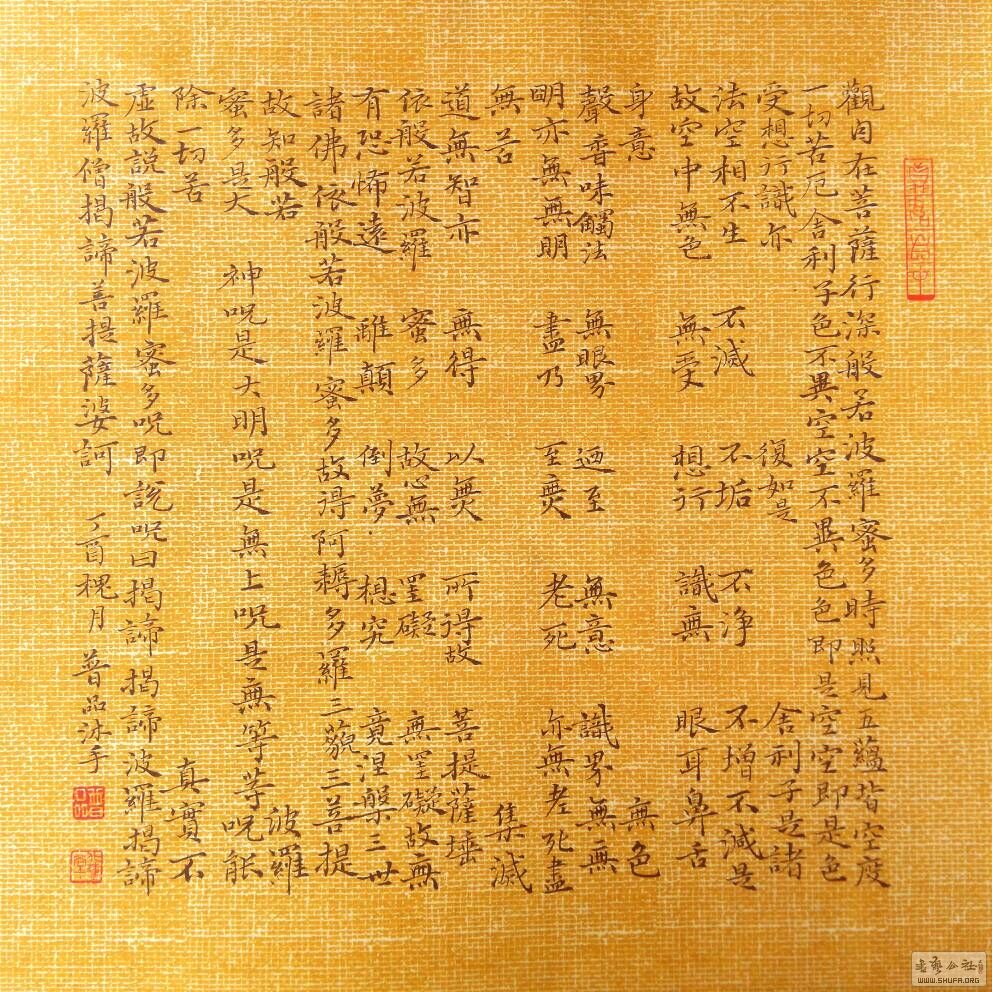 觀自在菩薩行深般若波羅蜜多時照見五蘊皆空度
一切苦厄舍利子色不異空空不異色色即是空空即是色
受想行識亦 復如是 舍利子是諸
法空相不生 不滅 不垢 不净 不增不減是
故空中無色 無受 想行 識無 眼耳鼻舌
身意 無色
聲香味觸法 無眼界 廼至 無意 識界無無
明亦無無明 盡乃 至無 老死 亦無老死盡
無苦 集滅
道無智亦 無得 以無 所得故 菩提薩埵
依般若波羅 蜜多 故心無 罣礙 無罣礙故無
有恐怖遠 離顛 倒夢 想究 竟涅槃三世
諸佛依般若波羅蜜多故得阿耨多羅三藐三菩提
故知般若 波羅
蜜多是大 神呪是大明呪是無上呪是無等等呪能
除一切苦 真實不
虛故說般若波羅蜜多呪即說呪曰揭諦揭諦波羅揭諦
波羅僧揭諦菩提薩婆訶 丁酉槐月 普品沐手
WWW.SHUFA.ORG